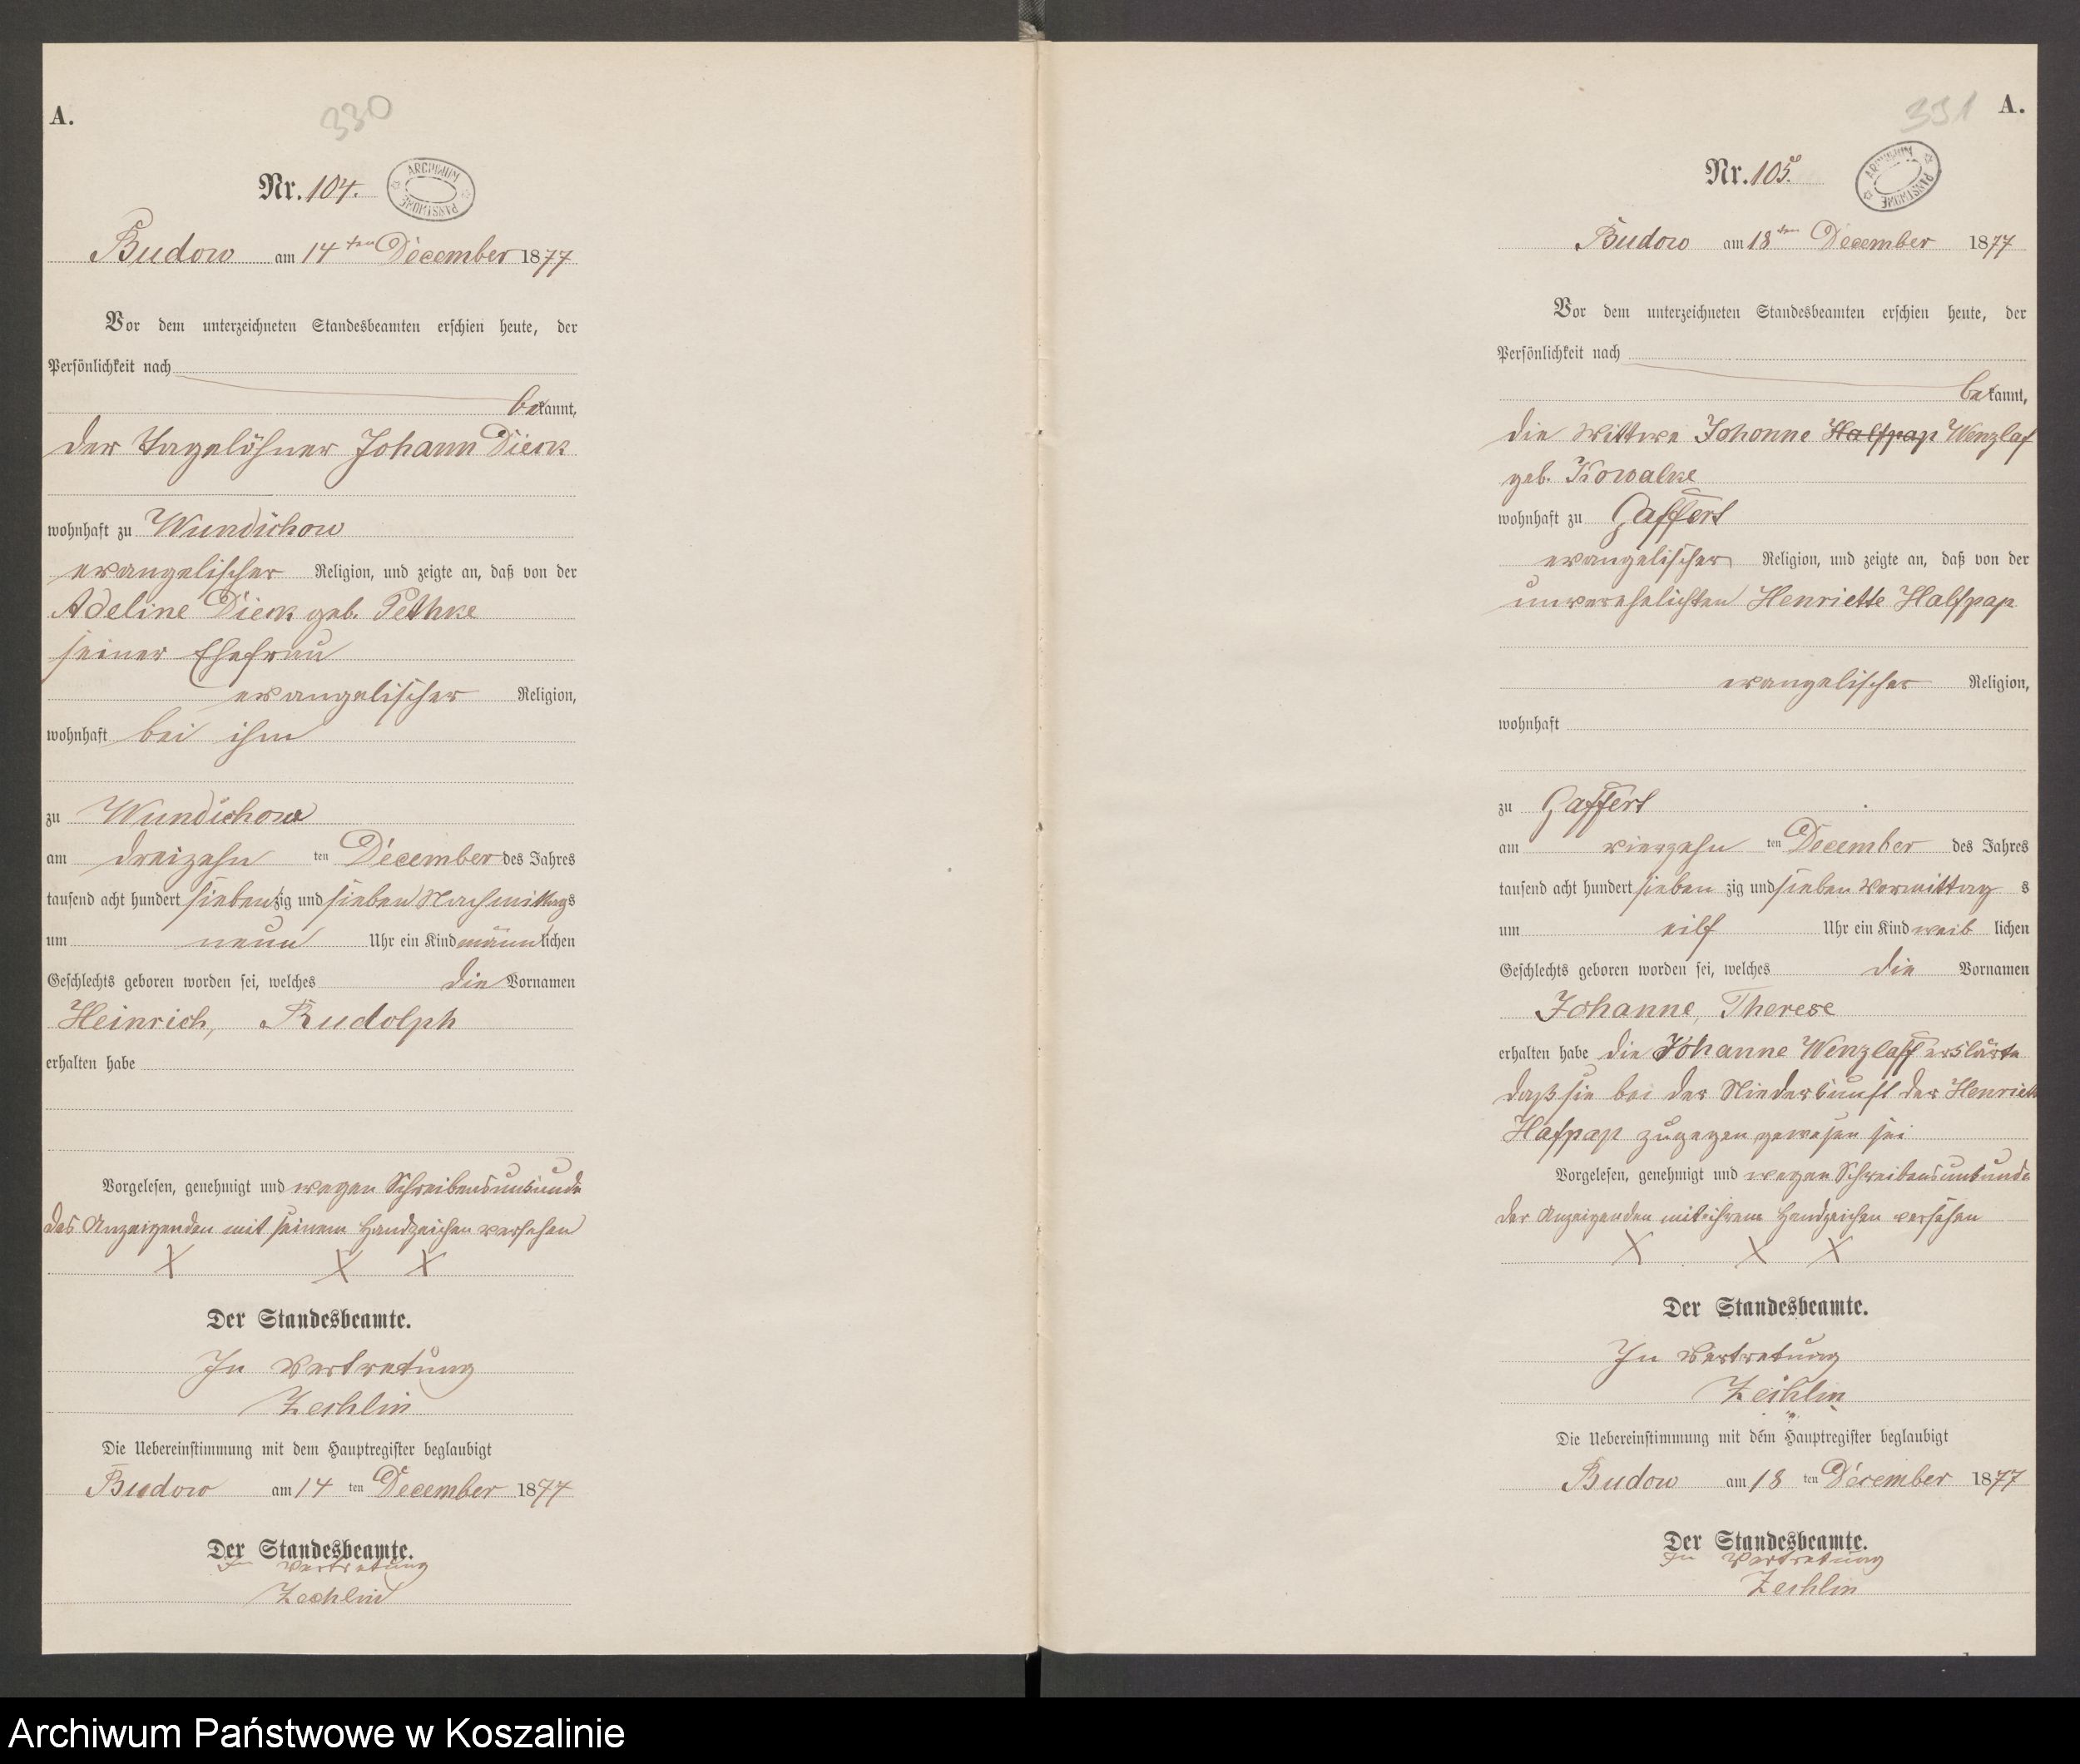 A.
330
Nr. 104.
ARCHIWUM PAŃSTWOWE
Budow am 14ten December 1877
Vor dem unterzeichneten Standesbeamten erschien heute, der
Persönlichkeit nach
bekannt,
der Tagelöhner Johann Dieck
wohnhaft zu Wundichow
evangelischer Religion, und zeigte an, daß von der
Adeline Dieck geb. Pethke
seiner Ehefrau
evangelischer Religion,
wohnhaft bei ihm
zu Wundichow
am dreizehn ten December des Jahres
tausend acht hundert siebenzig und sieben Nachmittags
um neun Uhr ein Kind männlichen
Geschlechts geboren worden sei, welches die Vornamen
Heinrich, Rudolph
erhalten habe
Vorgelesen, genehmigt und wegen Schreibensunkunde
des Anzeigenden mit seinem Handzeichen versehen
X X X
Der Standesbeamte.
In Vertretung
Zechlin
Die Uebereinstimmung mit dem Hauptregister beglaubigt
Budow am 14 ten December 1877
Der Standesbeamte.
In Vertretung
Zechlin
331
A.
Nr. 105.
ARCHIWUM PAŃSTWOWE
Budow am 18ten December 1877
Vor dem unterzeichneten Standesbeamten erschien heute, der
Persönlichkeit nach
bekannt,
die Wittwe Johonne Halfpap Wenzlaf
geb. Kowalke
wohnhaft zu Gaffert
evangelischer Religion, und zeigte an, daß von der
unverehelichten Henriette Halfpap
evangelischer Religion,
wohnhaft
zu Gaffert
am vierzehn ten December des Jahres
tausend acht hundert sieben zig und sieben Vormittag s
um eilf Uhr ein Kind weib lichen
Geschlechts geboren worden sei, welches die Vornamen
Johanne, Therese
erhalten habe die Johanne Wenzlaff erklärte
daß sie bei der Niederkunft der Henriette
Hafpap zugegen gewesen sei
Vorgelesen, genehmigt und wegen Schreibensunkunde
der Anzeigenden mit ihrem Handzeichen versehen
X X X
Der Standesbeamte.
In Vertretung
Zechlin
Die Uebereinstimmung mit dem Hauptregister beglaubigt
Budow am 18 ten December 1877
Der Standesbeamte.
In Vertretung
Zechlin
Archiwum Państwowe w Koszalinie